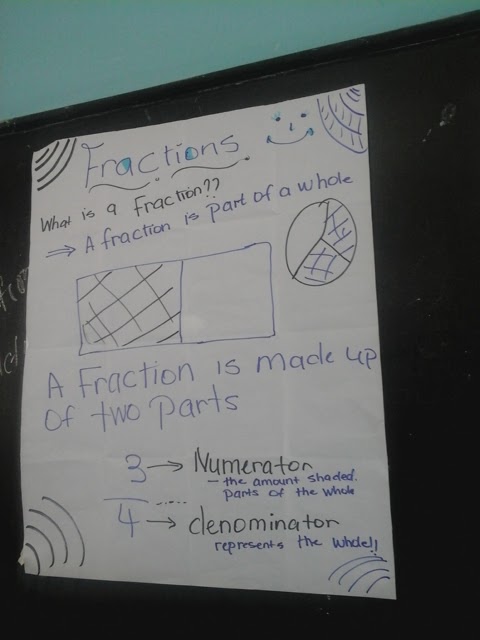 Fractions
What is a Fraction??
⇒ A fraction is part of a whole
A Fraction is made up
of two parts
3 → Numerator
– the amount shaded.
parts of the whole
4 → denominator
represents the whole!!